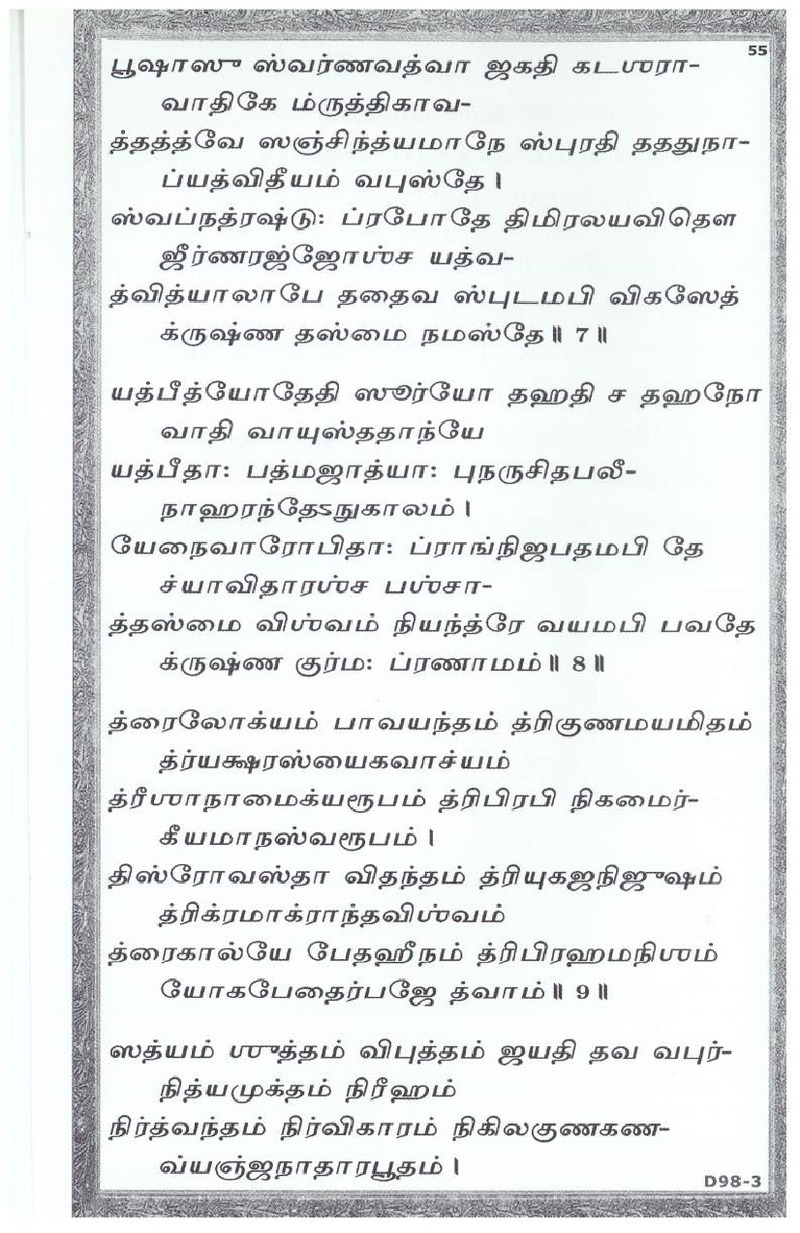 55
பூஷாஸு ஸ்வர்ணவத்வா ஜகதி கடஶரா-
வாதிகே ம்ருத்திகாவ-
த்தத்த்வே ஸஞ்சிந்த்யமாநே ஸ்புரதி தததுநா-
ப்யத்விதீயம் வபுஸ்தே।
ஸ்வப்நத்ரஷ்டு: ப்ரபோதே திமிரலயவிதௌ
ஜீர்ணரஜ்ஜோஶ்ச யத்வ-
த்வித்யாலாபே ததைவ ஸ்புடமபி விகஸேத்
க்ருஷ்ண தஸ்மை நமஸ்தே॥ 7॥
யத்பீத்யோதேதி ஸூர்யோ தஹதி ச தஹநோ
வாதி வாயுஸ்ததாந்யே
யத்பீதா: பத்மஜாத்யா: புநருசிதபலீ-
நாஹரந்தேऽநுகாலம்।
யேநைவாரோபிதா: ப்ராங்நிஜபதமபி தே
ச்யாவிதாரஶ்ச பஶ்சா-
த்தஸ்மை விஶ்வம் நியந்த்ரே வயமபி பவதே
க்ருஷ்ண குர்ம: ப்ரணாமம்॥ 8॥
த்ரைலோக்யம் பாவயந்தம் த்ரிகுணமயமிதம்
த்ர்யக்ஷரஸ்யைகவாச்யம்
த்ரீஶாநாமைக்யரூபம் த்ரிபிரபி நிகமைர்-
கீயமாநஸ்வரூபம்।
திஸ்ரோவஸ்தா விதந்தம் த்ரியுகஜநிஜுஷம்
த்ரிக்ரமாக்ராந்தவிஶ்வம்
த்ரைகால்யே பேதஹீநம் த்ரிபிரஹமநிஶம்
யோகபேதைர்பஜே த்வாம்॥ 9॥
ஸத்யம் ஶுத்தம் விபுத்தம் ஜயதி தவ வபுர்-
நித்யமுக்தம் நிரீஹம்
நிர்த்வந்தம் நிர்விகாரம் நிகிலகுணகண-
வ்யஞ்ஜநாதாரபூதம்।
D98-3